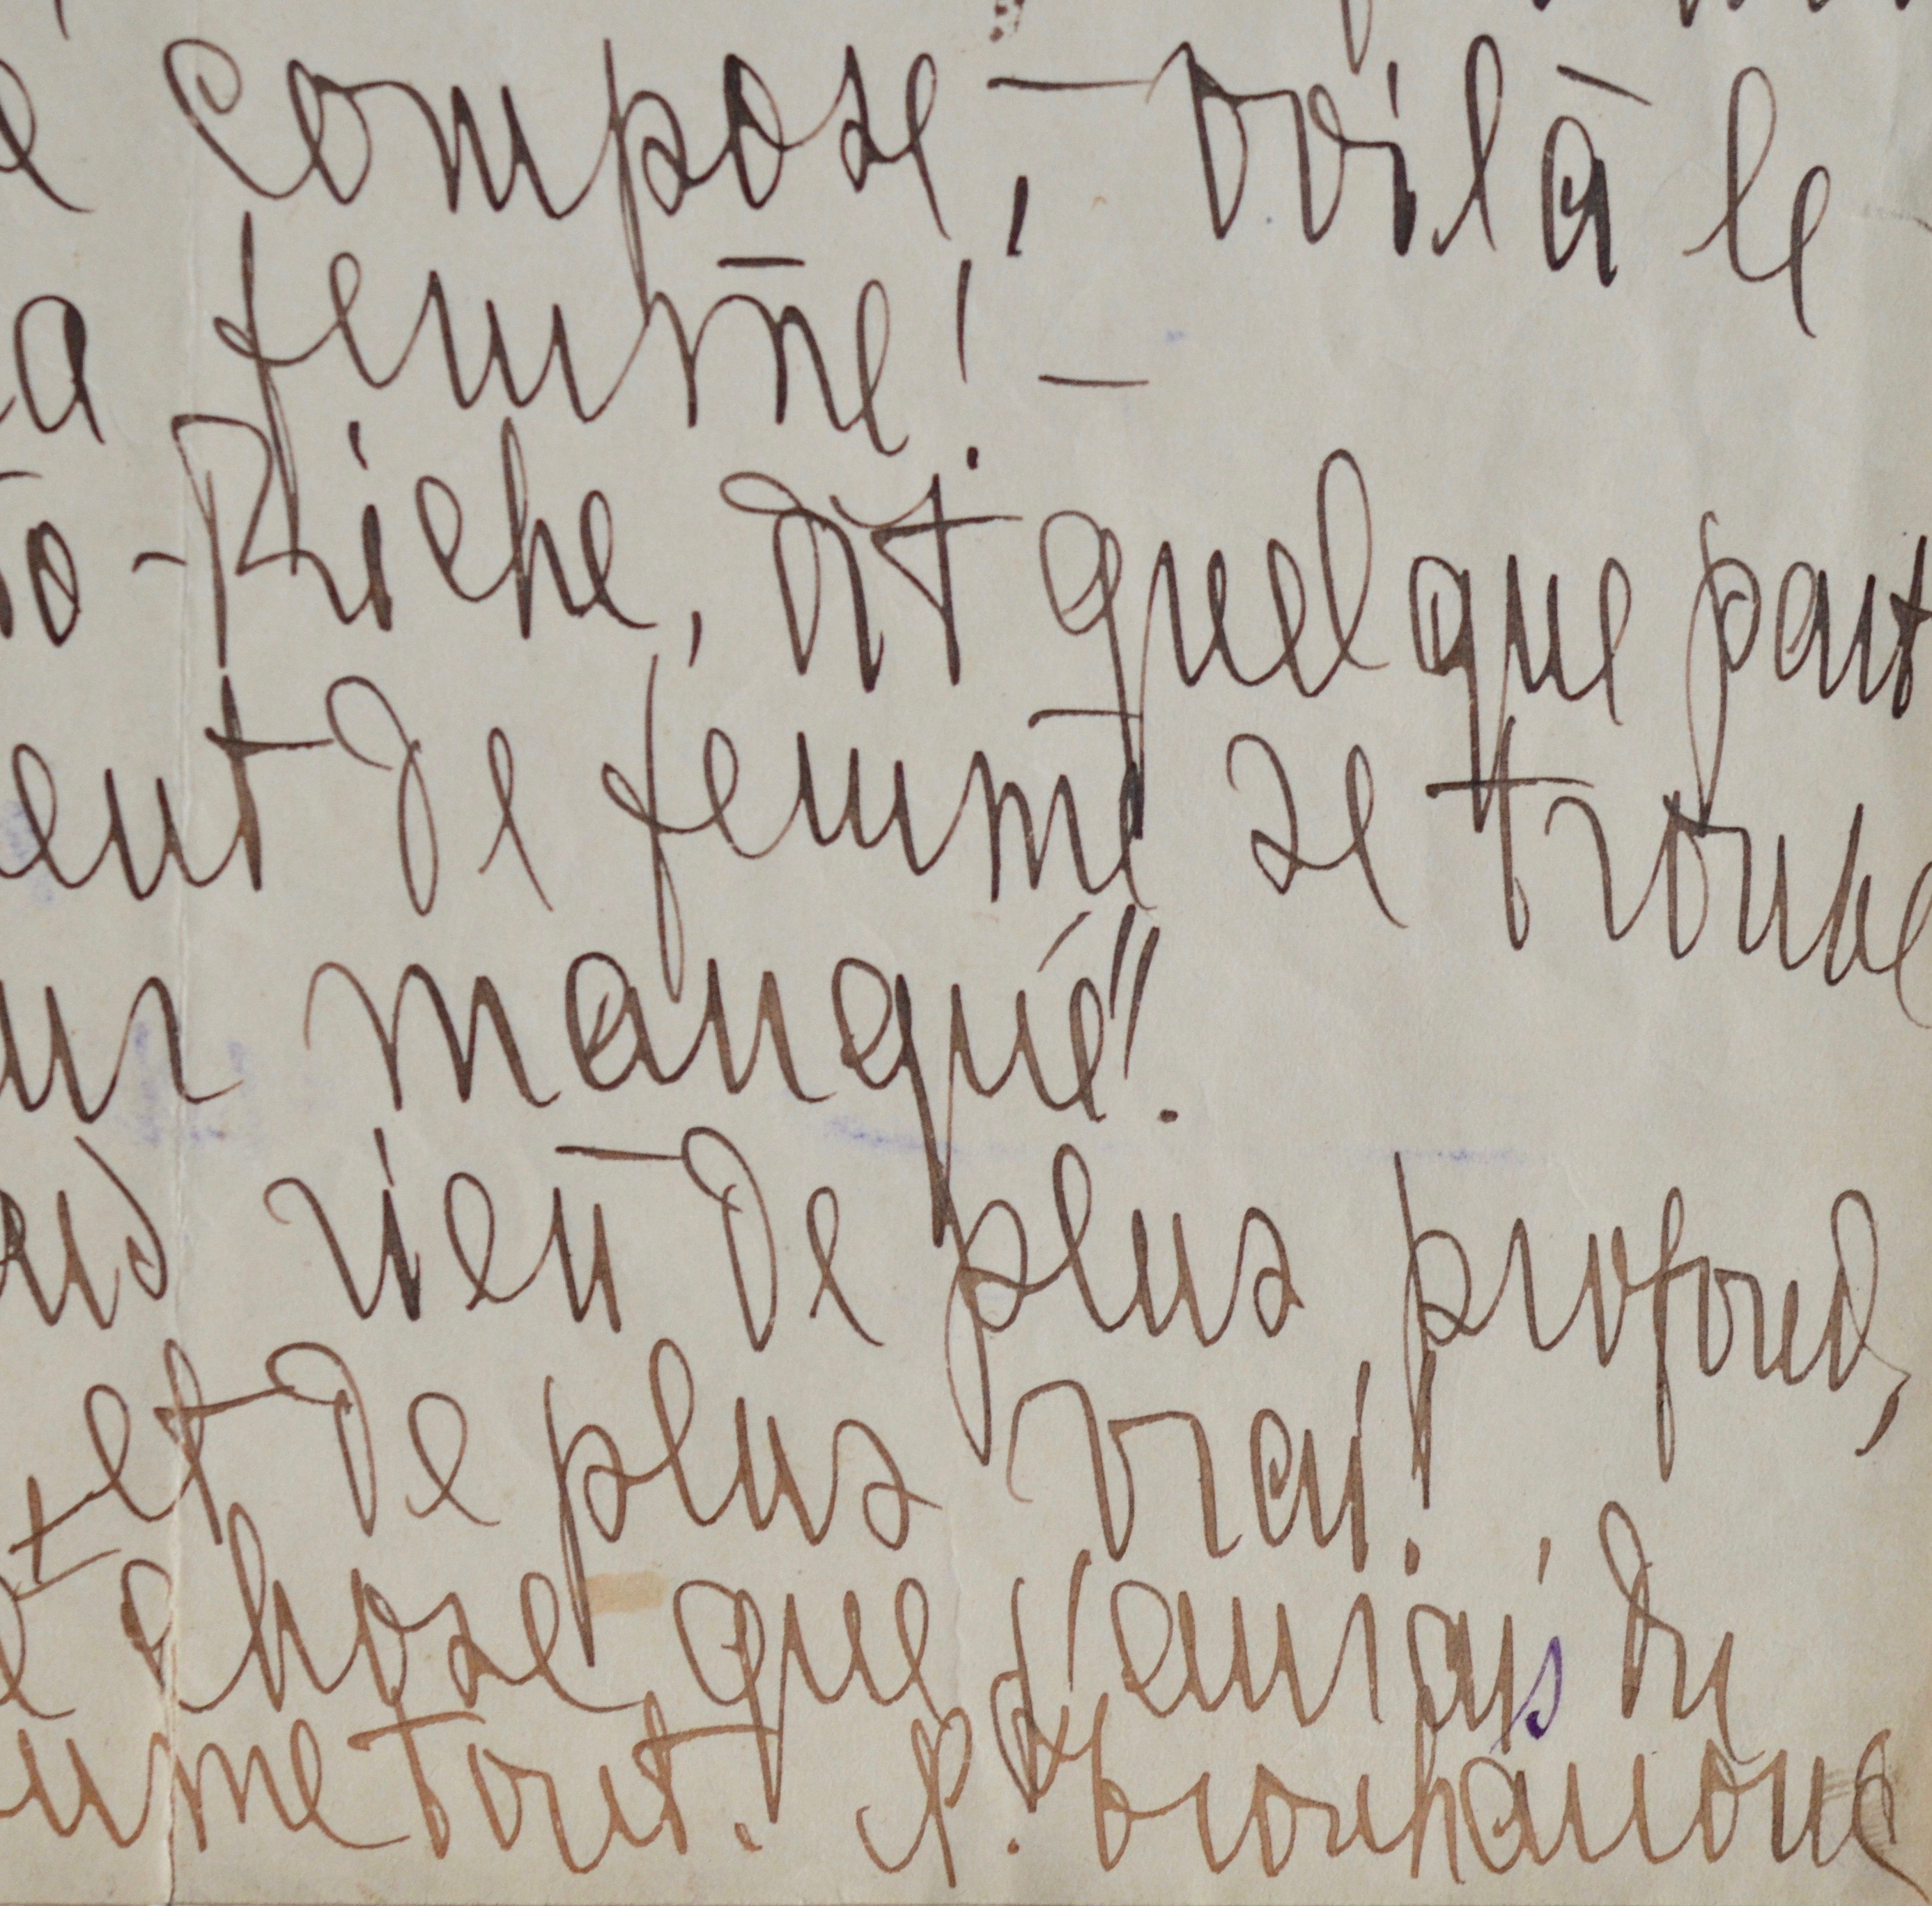 e compose, — voilà le
a femme! —
to-Riche, dit quelque part
ent de femme se trouve
ur manqué".
rien de plus profond,
et de plus vrai!
chose que j'aurais du
tout.